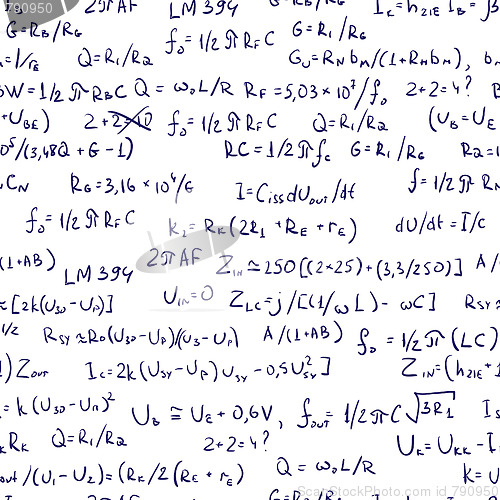 2πAF LM394 Ic=h21E IB=β
G=RB/RG f0=1/2πRFC G=R1/RG
=1/rE Q=R1/R2 GU=RNbM/(1+RNbM), bM
BW=1/2πRBC Q=ω0L/R RF=5,03×10⁷/f0 2+2=4?
+UBE) 2+2=10 f0=1/2πRFC Q=R1/R2 (UB=UE
0⁵/(3,48Q+G-1) RC=1/2πfc G=R1/RG R2=1
CN RG=3,16×10⁴/G I=CissdUout/dt f=1/2πRN
f0=1/2πRFC k2=RK(2R1+RE+rE) dU/dt=I/C
(1+AB) LM394 2πAF ZIN≃250[(2×25)+(3,3/250)] A/
≈[2k(U30-UP)] UIN=0 ZLC=j/[(1/ωL)-ωC] RSY≈
1/2 RSY≈R0(U30-UP)/(U3-UP) A/(1+AB) f0=1/2π(LC)
)ZOUT IC=2k(USY-UP)USY-0,5U²SY] ZIN=(h21E+1
=k(U30-UП)² UB≅UE+0,6V, fOUT=1/2πC√3R1 IS
KRK Q=R1/R2 2+2=4? UK=UKK-I
out/(U1-U2)=(RK/2(RE+rE) Q=ω0L/R k=U